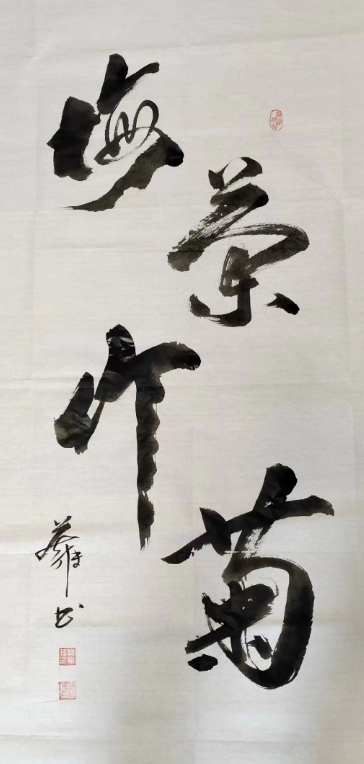 梅
蘭
竹
菊
书